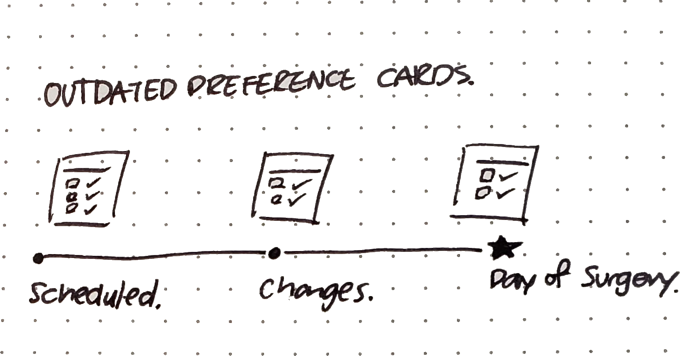 OUTDATED PREFERENCE CARDS.
Scheduled.
Changes.
Day of Surgery.